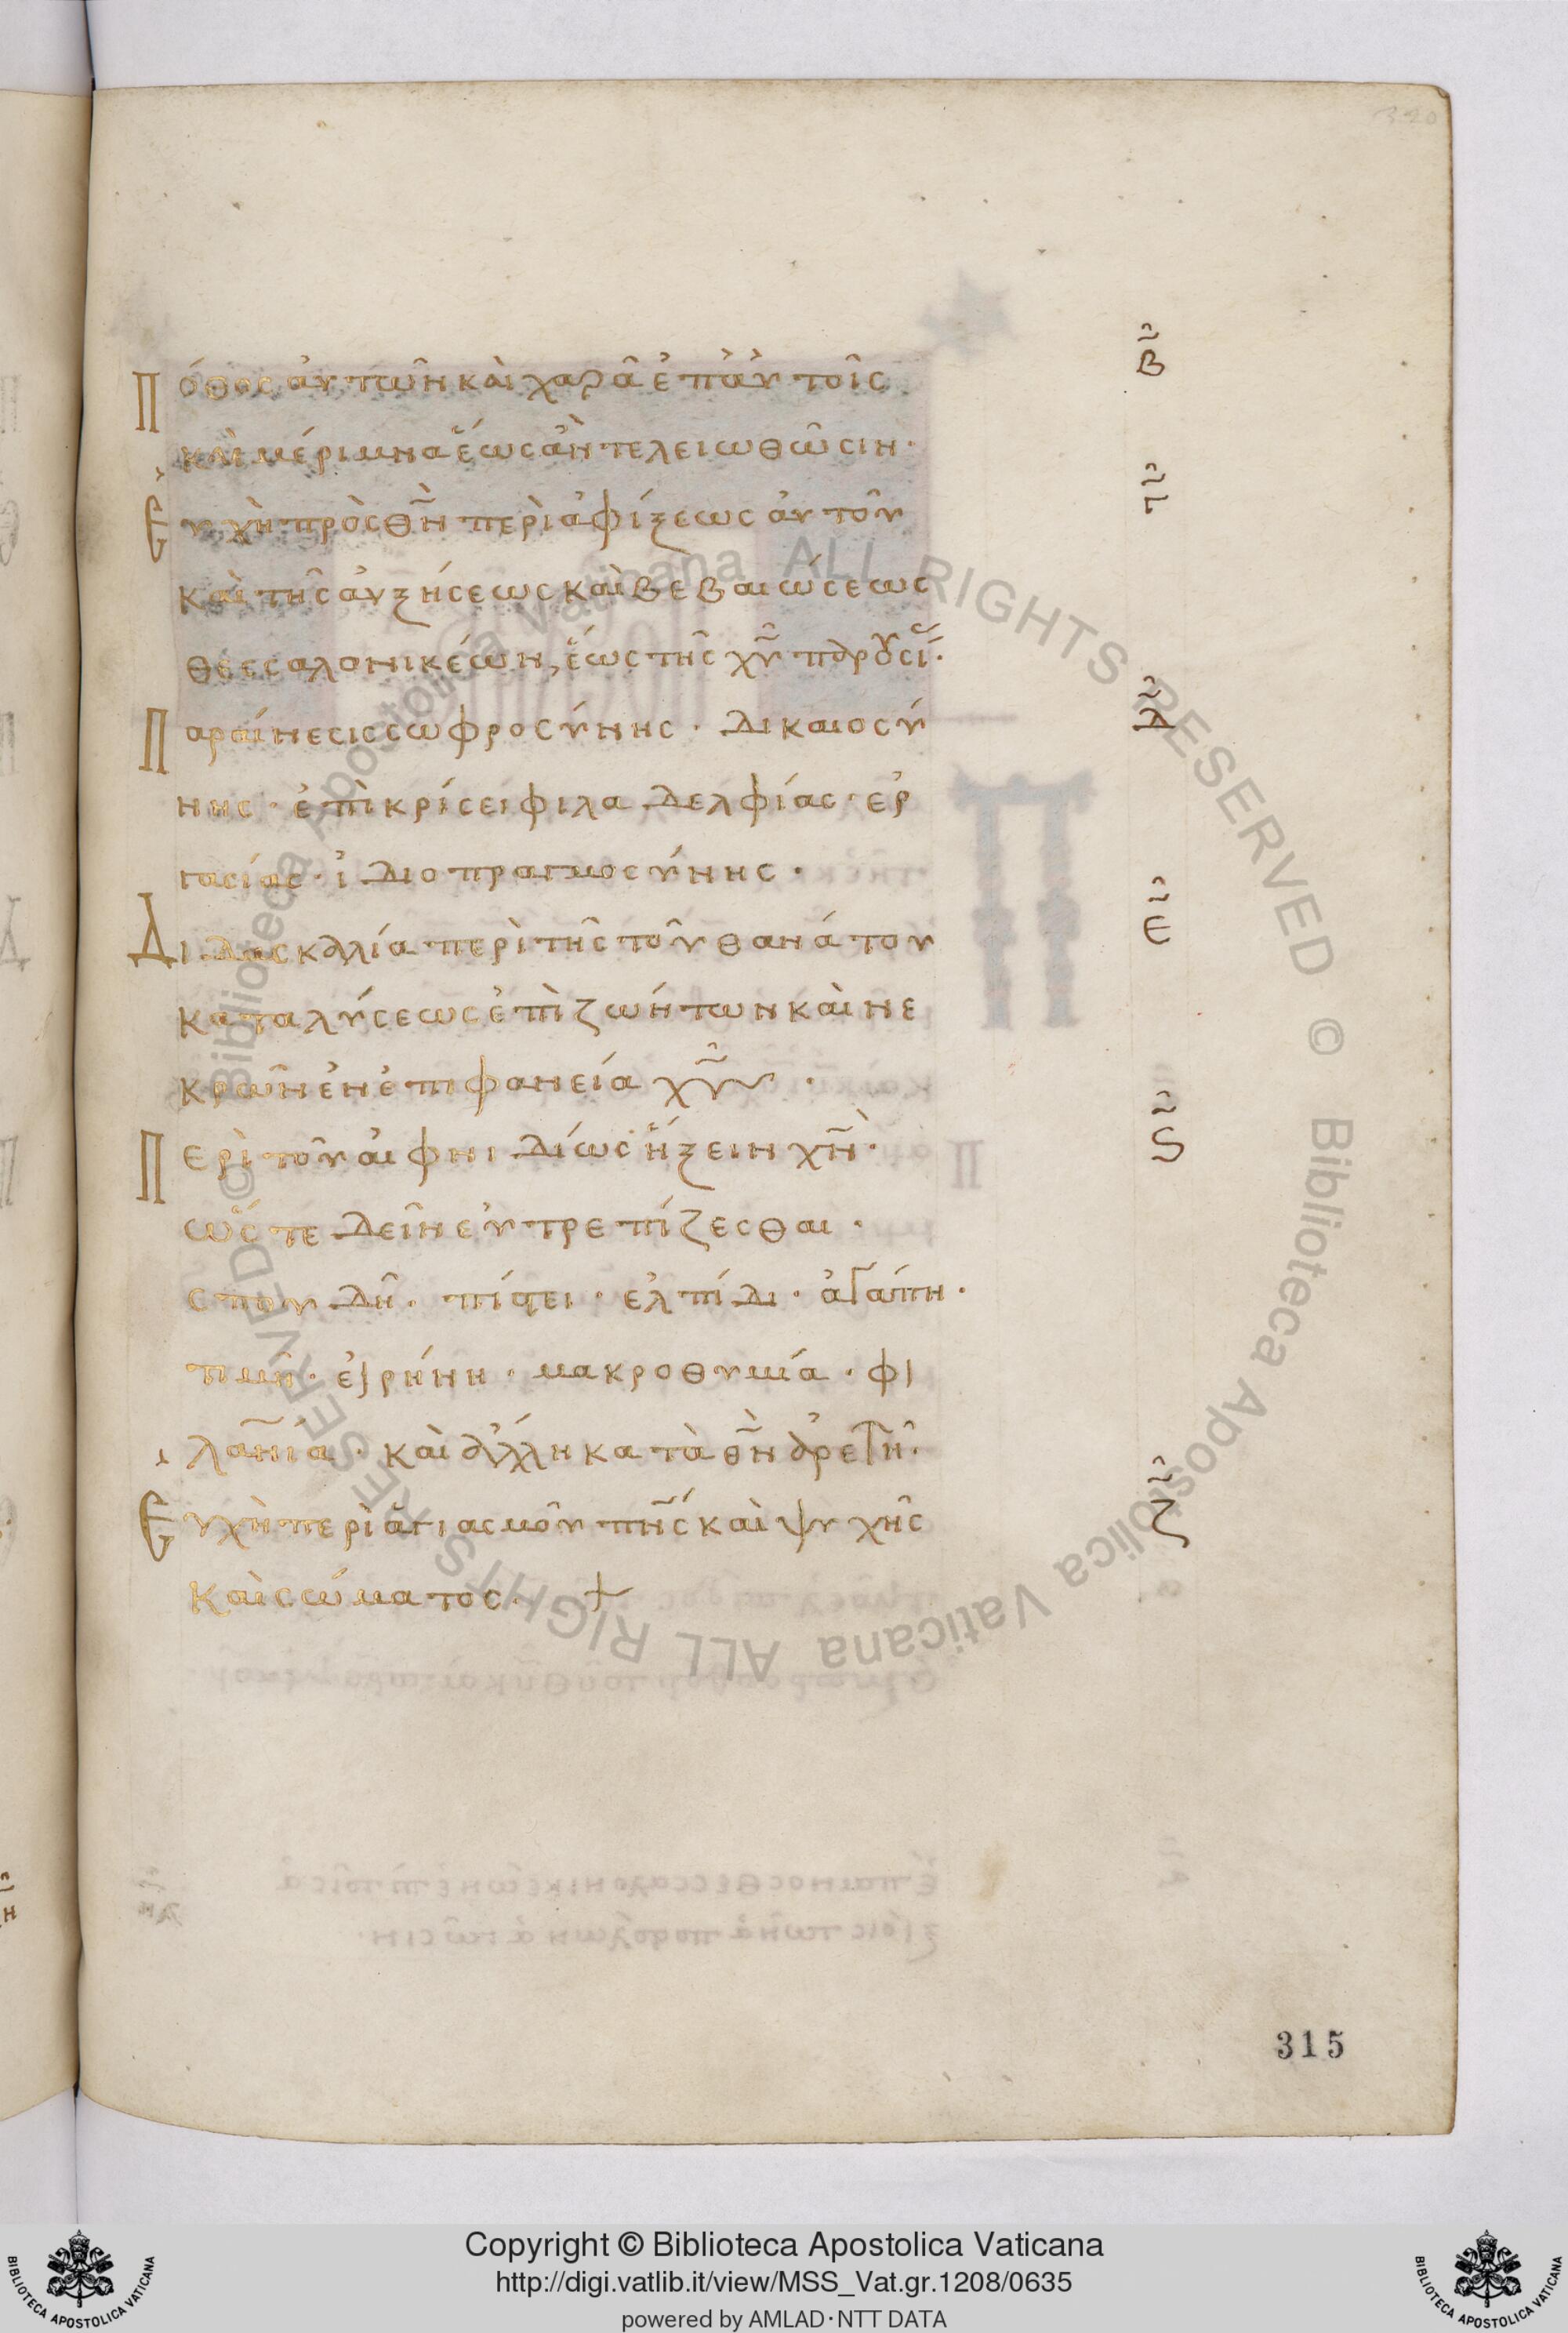 320
Πόθος αὐτῶν καὶ χαρᾶ ἐπ' αὐτοῖς β̃
καὶ μέριμνα ἕως ἂν τελειωθῶσιν·
Εὐχὴ πρὸς θ̅ν̅ περὶ ἀφίξεως αὐτοῦ γ̃
καὶ τῆς αὐξήσεως καὶ βεβαιώσεως
Θεσσαλονικέων, ἕως τῆς χ̅υ̅ παρουσί·
Παραίνεσις σωφροσύνης · δικαιοσύ δ̃
νης · ἐπὶ κρίσει φιλαδελφίας · ἐρ
γασίας · ἰδιοπραγμοσύνης ·
Διδασκαλία περὶ τῆς τοῦ θανάτου ε̃
καταλύσεως ἐπὶ ζώντων καὶ νε
κρῶν ἐν ἐπιφανεία χ̅υ̅ ·
Περὶ τοῦ αἰφνιδίως ἥξειν χ̅ν̅· ϛ̃
ὥστε δεῖν εὐτρεπίζεσθαι ·
σπουδῆ · πίστει · ἐλπίδι · ἀγάπη ·
τιμῆ · εἰρήνη · μακροθυμία · φι
λα̅ν̅ία · καὶ ἄλλη κατὰ θ̅ν̅ ἀρετῆ·
Εὐχὴ περὶ ἁγιασμοῦ π̅ν̅ς̅ καὶ ψυχῆς ζ̃
καὶ σώματος · +
315
ALL RIGHTS RESERVED © Biblioteca Apostolica Vaticana ALL RIGHTS RESERVED © Biblioteca Apostolica Vaticana
Copyright © Biblioteca Apostolica Vaticana
http://digi.vatlib.it/view/MSS_Vat.gr.1208/0635
powered by AMLAD·NTT DATA
BIBLIOTECA APOSTOLICA VATICANA
BIBLIOTECA APOSTOLICA VATICANA